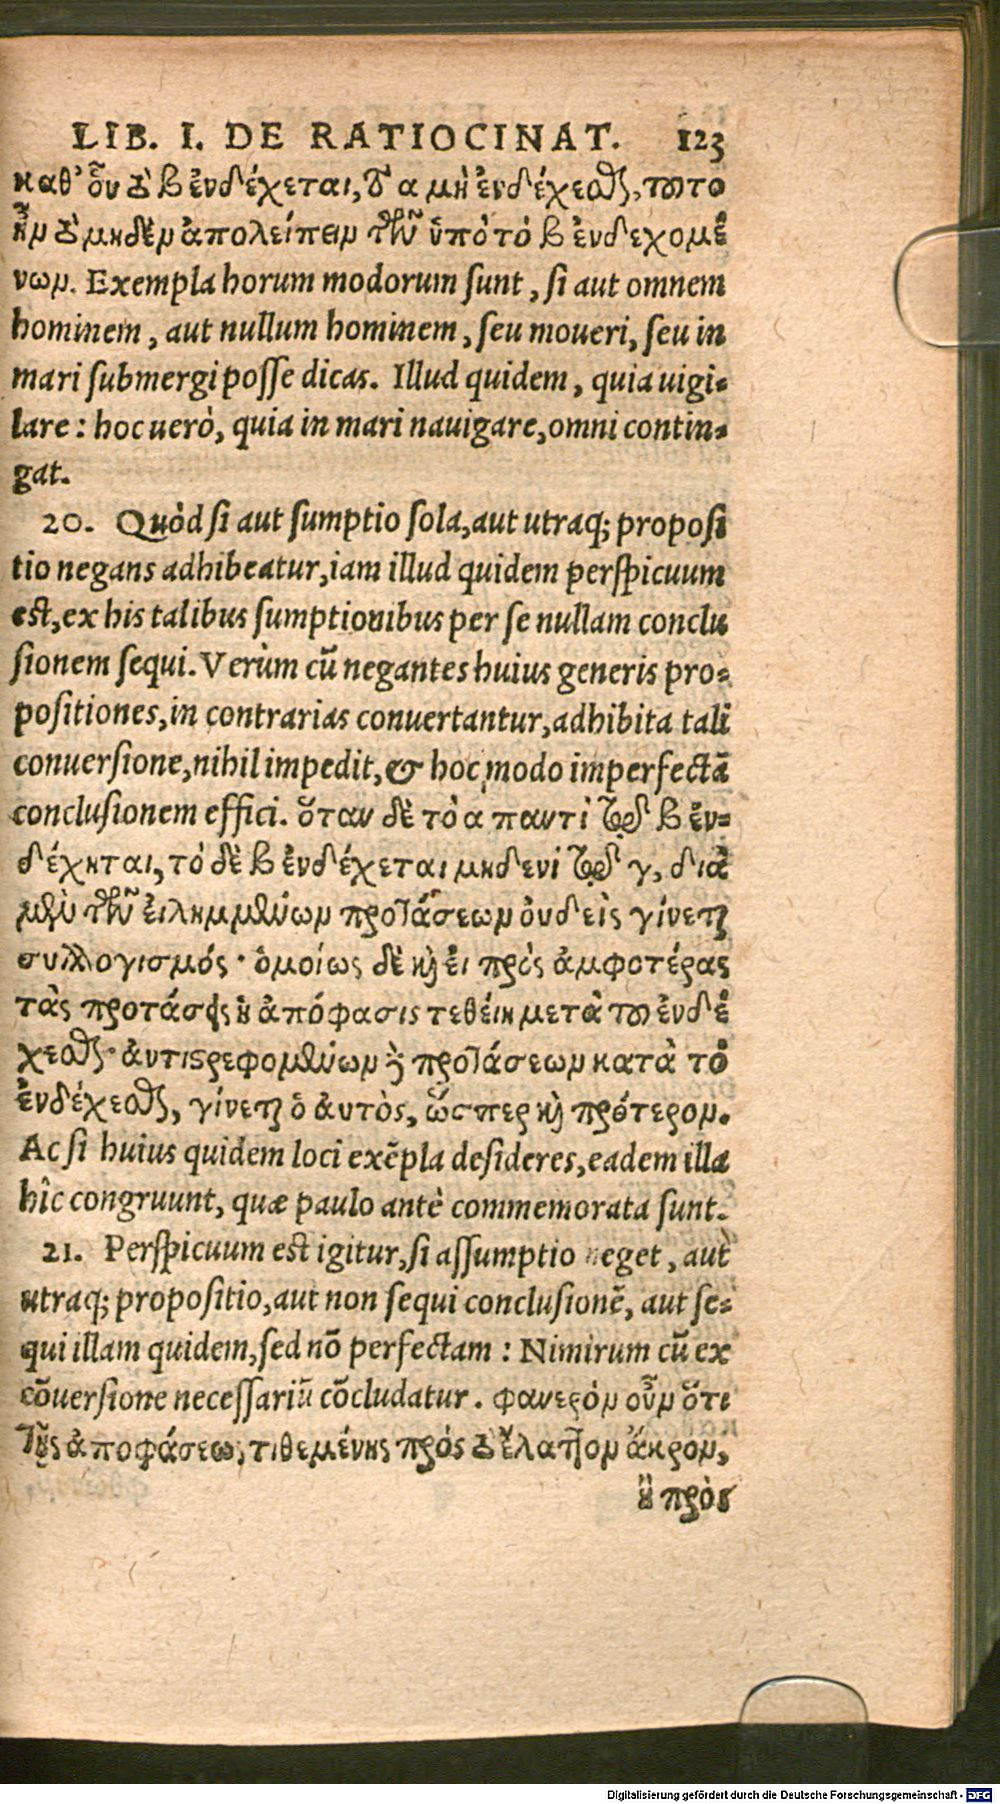 LIB. I. DE RATIOCINAT. 123
καθ' ὃν τὸ β ἐνδέχεται, τὸ α μὴ ἐνδέχεσθαι, τοῦτο
ἦν τὸ μηδὲν ἀπολείπειν τῶν ὑπὸ τὸ β ἐνδεχομέ
νων. Exempla horum modorum sunt, si aut omnem
hominem, aut nullum hominem, seu moueri, seu in
mari submergi posse dicas. Illud quidem, quia uigi-
lare: hoc uerò, quia in mari nauigare, omni contin-
gat.
20. Quòd si aut sumptio sola, aut utraq; proposi
tio negans adhibeatur, iam illud quidem perspicuum
est, ex his talibus sumptionibus per se nullam conclu
sionem sequi. Verùm cũ negantes huius generis pro-
positiones, in contrarias conuertantur, adhibita tali
conuersione, nihil impedit, & hoc modo imperfectã
conclusionem effici. ὅταν δὲ τὸ α παντὶ τῷ β ἐν-
δέχηται, τὸ δὲ β ἐνδέχεται μηδενὶ τῷ γ, διὰ
μὲν τῶν εἰλημμένων προτάσεων οὐδεὶς γίνεται
συλλογισμός· ὁμοίως δὲ καὶ εἰ πρὸς ἀμφοτέρας
τὰς προτάσεις ἡ ἀπόφασις τεθείη μετὰ τοῦ ἐνδέ
χεσθαι· ἀντιστρεφομένων δὲ προτάσεων κατὰ τὸ
ἐνδέχεσθαι, γίνεται ὁ αὐτὸς, ὥσπερ καὶ πρότερον.
Ac si huius quidem loci exẽpla desideres, eadem illa
hîc congruunt, quæ paulo antè commemorata sunt.
21. Perspicuum est igitur, si assumptio neget, aut
utraq; propositio, aut non sequi conclusionẽ, aut se-
qui illam quidem, sed nõ perfectam: Nimirum cũ ex
cõuersione necessariũ cõcludatur. φανερὸν οὖν ὅτι
τῆς ἀποφάσεως τιθεμένης πρὸς τὸ ἔλαττον ἄκρον,
ἢ πρὸς
Digitalisierung gefördert durch die Deutsche Forschungsgemeinschaft - DFG